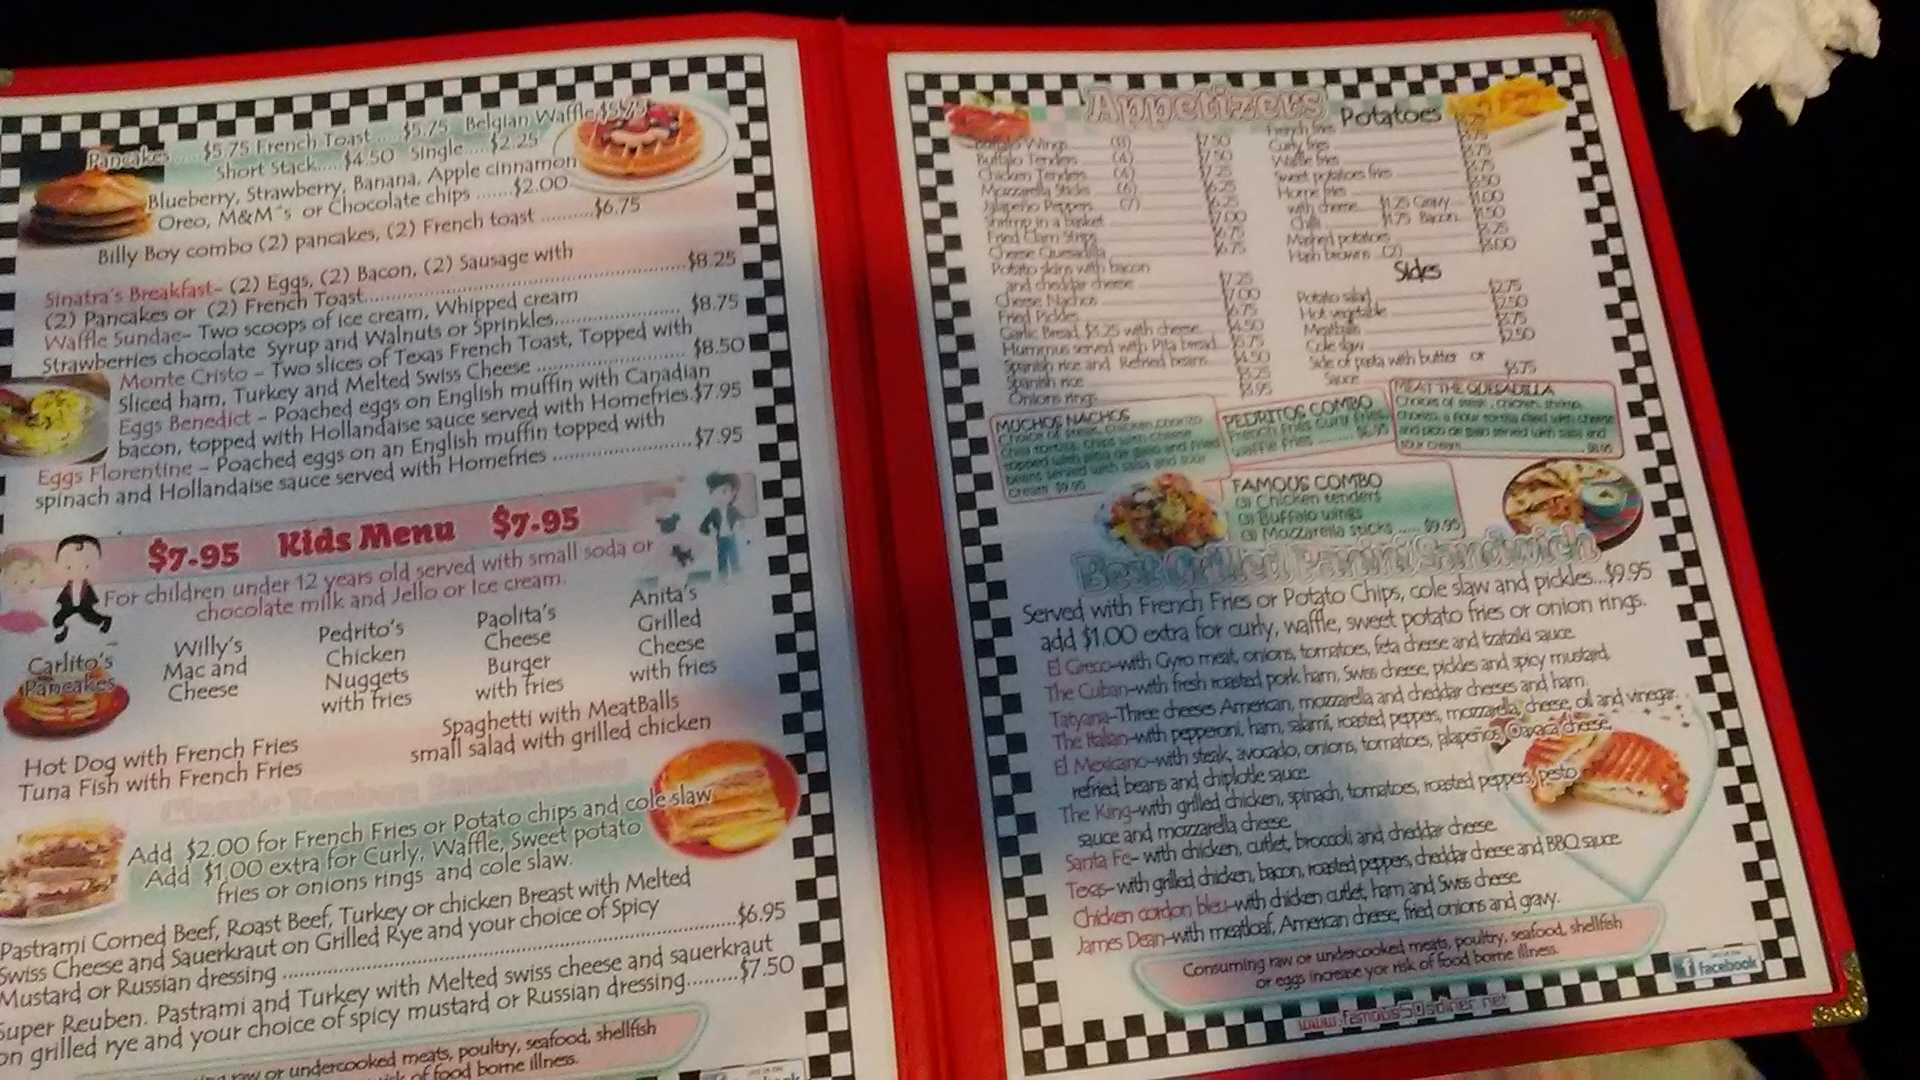 Pancakes......$5.75 French Toast.....$5.75 Belgian Waffle $5.75
Short Stack.....$4.50 Single.....$2.25
Blueberry, Strawberry, Banana, Apple cinnamon
Oreo, M&M´s or Chocolate chips .......$2.00
Billy Boy combo (2) pancakes, (2) French toast ..........$6.75
Sinatra's Breakfast- (2) Eggs, (2) Bacon, (2) Sausage with
(2) Pancakes or (2) French Toast..........$8.25
Waffle Sundae- Two scoops of ice cream, Whipped cream
Strawberries chocolate Syrup and Walnuts or Sprinkles..........$8.75
Monte Cristo - Two slices of Texas French Toast, Topped with
Sliced ham, Turkey and Melted Swiss Cheese ..........$8.50
Eggs Benedict - Poached eggs on English muffin with Canadian
bacon, topped with Hollandaise sauce served with Homefries.$7.95
Eggs Florentine - Poached eggs on an English muffin topped with
spinach and Hollandaise sauce served with Homefries ..........$7.95
$7.95 Kids Menu $7.95
For children under 12 years old served with small soda or
chocolate milk and Jello or Ice cream.
Carlito's
Pancakes
Willy's
Mac and
Cheese
Pedrito's
Chicken
Nuggets
with fries
Paolita's
Cheese
Burger
with fries
Anita's
Grilled
Cheese
with fries
Hot Dog with French Fries
Tuna Fish with French Fries
Spaghetti with MeatBalls
small salad with grilled chicken
Add $2.00 for French Fries or Potato chips and cole slaw
Add $1.00 extra for Curly, Waffle, Sweet potato
fries or onions rings and cole slaw.
Pastrami Corned Beef, Roast Beef, Turkey or chicken Breast with Melted
Swiss Cheese and Sauerkraut on Grilled Rye and your choice of Spicy
Mustard or Russian dressing ..........$6.95
Super Reuben. Pastrami and Turkey with Melted swiss cheese and sauerkraut
on grilled rye and your choice of spicy mustard or Russian dressing.........$7.50
raw or undercooked meats, poultry, seafood, shellfish
risk of food borne illness.
Appetizers
Wings (8) $7.50
Buffalo Tenders (4) $7.50
Chicken Tenders (4) $7.25
Mozzarella Sticks (6) $6.25
Jalapeño Poppers (7) $6.25
Shrimp in a basket $7.00
Fried Clam Strips $6.75
Cheese Quesadilla $6.75
Potato skins with bacon
and cheddar cheese $7.25
Cheese Nachos $7.00
Fried Pickles $6.75
Garlic Bread $3.25 with cheese $4.50
Hummus served with Pita bread $6.75
Spanish rice and Refried beans $4.50
Spanish rice $3.25
Onions rings $3.95
Potatoes
French fries
Curly fries
Waffle fries
Sweet potatoes fries
Home fries
with cheese $1.25 Gravy $1.00
Chilli $1.75 Bacon $1.50
Mashed potatoes $3.25
Hash browns (2) $3.00
Sides
Potato salad $2.75
Hot vegetable $2.50
Meatballs $3.75
Cole slaw $2.50
Side of pasta with butter or
Sauce $3.75
MUCHOS NACHOS
Choice of steak, chicken, chorizo
tortilla chips with cheese
topped with pico de gallo and fried
beans served with salsa and sour
cream $9.95
PEDRITOS COMBO
French fries Curly fries
waffle fries .......... $6.95
MEAT THE QUESADILLA
Choices of steak, chicken, shrimp,
chorizo, a flour tortilla filled with cheese
and pico de gallo served with salsa and
sour cream
FAMOUS COMBO
(3) Chicken tenders
(3) Buffalo wings
(3) Mozzarella sticks ..... $9.95
Best Grilled Panini Sandwich
Served with French Fries or Potato Chips, cole slaw and pickles...$9.95
add $1.00 extra for curly, waffle, sweet potato fries or onion rings.
El Greco-with Gyro meat, onions, tomatoes, feta cheese and tzatziki sauce
The Cuban-with fresh roasted pork ham, Swiss cheese, pickles and spicy mustard.
Tatyana-Three cheeses American, mozzarella and cheddar cheeses and ham.
The Italian-with pepperoni, ham, salami, roasted peppers, mozzarella, cheese, oil and vinegar.
El Mexicano-with steak, avocado, onions, tomatoes, jalapeños, Oaxaca cheese,
refried beans and chiplotle sauce
The King-with grilled chicken, spinach, tomatoes, roasted peppers, pesto
sauce and mozzarella cheese
Santa Fe- with chicken, cutlet, broccoli and cheddar cheese
Texas-with grilled chicken, bacon, roasted peppers, cheddar cheese and BBQ sauce
Chicken cordon bleu-with chicken cutlet, ham and Swiss cheese
James Dean-with meatloaf, American cheese, fried onions and gravy.
Consuming raw or undercooked meats, poultry, seafood, shellfish
or eggs increase yor risk of food borne illness.
facebook
www.famous50sdiner.net